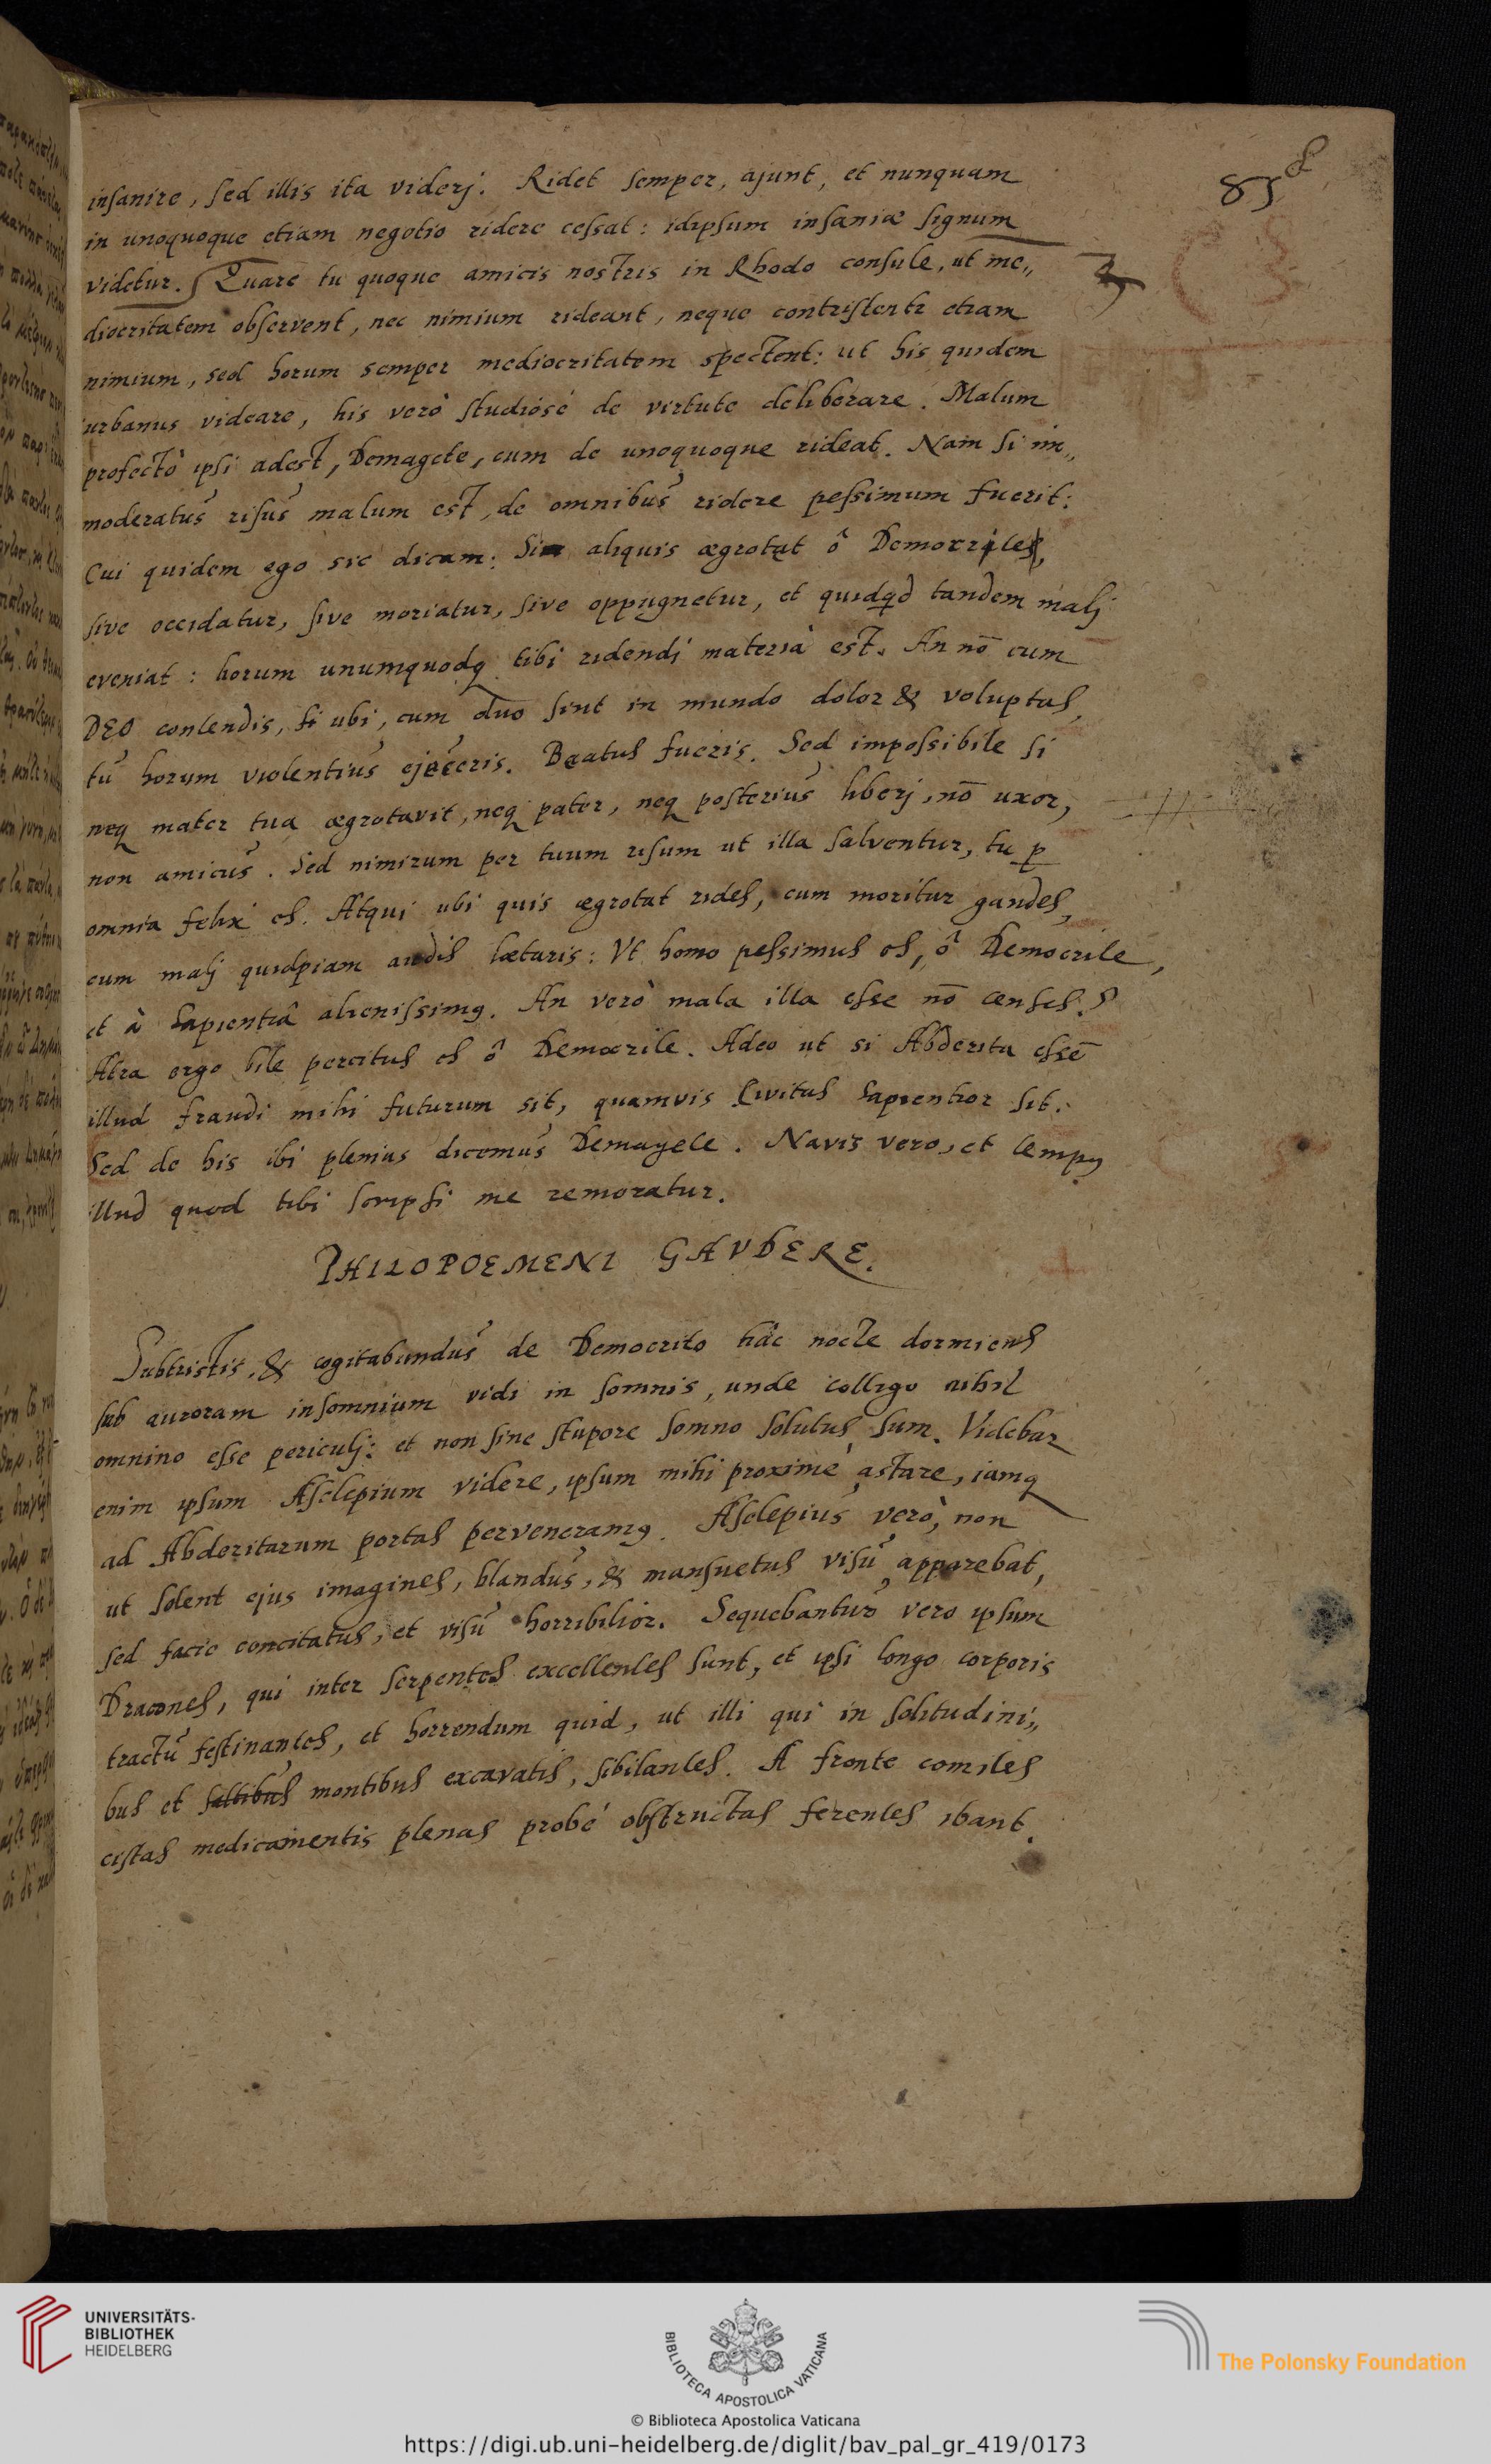 85
insanire, sed illis ita viderj. Ridet semper, ajunt, et nunquam
in unoquoque etiam negotio ridere cessat: idipsum insaniæ signum
videtur. Quare tu quoque amicis nostris in Rhodo consule, ut me„
diocritatem observent, nec nimium rideant, neque contristentr etiam
nimium, sed horum semper mediocritatem spectent: ut his quidem
urbanus videare, his verò studiosé de virtute deliberare. Malum
profectò ipsi adest, Demagete, cum de unoquoque rideat. Nam si im„
moderatus risus malum est, de omnibus ridere pessimum fuerit:
Cui quidem ego sic dicam: aliquis ægrotat ô
sive occidatur, sive moriatur, sive oppugnetur, et quidqd tandem malj
eveniat: horum unumquodq tibi ridendi materia est. An nō cum
DEO contendis, si ubi, cum duo sint in mundo dolor & voluptas,
tu horum violentius ejeceris. Beatus fueris. Sed impossibile si
neq mater tua ægrotavit, neq pater, neq posterius liberj, nō uxor,
non amicus. Sed nimirum per tuum risum ut illa salventur, tu p
omnia felix es. Atqui ubi quis ægrotat rides, cum moritur gaudes,
cum malj quidpiam audis lætaris: Ut homo pessimus es, ô Democrite,
et à sapientiâ alienissimq. An verò mala illa esse nō censes?
Atra ergo bile percitus es ô Democrite. Adeo ut si Abderita essē
illud fraudi mihi futurum sit, quamvis Civitas sapientior sit.
Sed de his ibi plenius dicemus Demagete. Navis vero, et tempq
illud quod tibi scripsi me remoratur.
PHILOPOEMENI GAVDERE.
Subtristis, & cogitabundus de Democrito hâc nocte dormiens
sub auroram insomnium vidi in somnis, unde colligo nihil
omnino esse periculj: et non sine stupore somno solutus sum. Videbar
enim ipsum Asclepium videre, ipsum mihi proximè astare, iamq
ad Abderitarum portas perveneramq. Asclepius verò, non
ut solent ejus imagines, blandus, & mansuetus visu apparebat,
sed facie concitatus, et visu horribilior. Sequebantur vero ipsum
Dracones, qui inter serpentes excellentes sunt, et ipsi longo corporis
tractu festinantes, et horrendum quid, ut illi qui in solitudini„
bus et saltibus montibus excavatis, sibilantes. A fronte comites
cistas medicamentis plenas probé obstructas ferentes ibant.
UNIVERSITÄTS-
BIBLIOTHEK
HEIDELBERG
BIBLIOTECA APOSTOLICA VATICANA
The Polonsky Foundation
© Biblioteca Apostolica Vaticana
https://digi.ub.uni-heidelberg.de/diglit/bav_pal_gr_419/0173